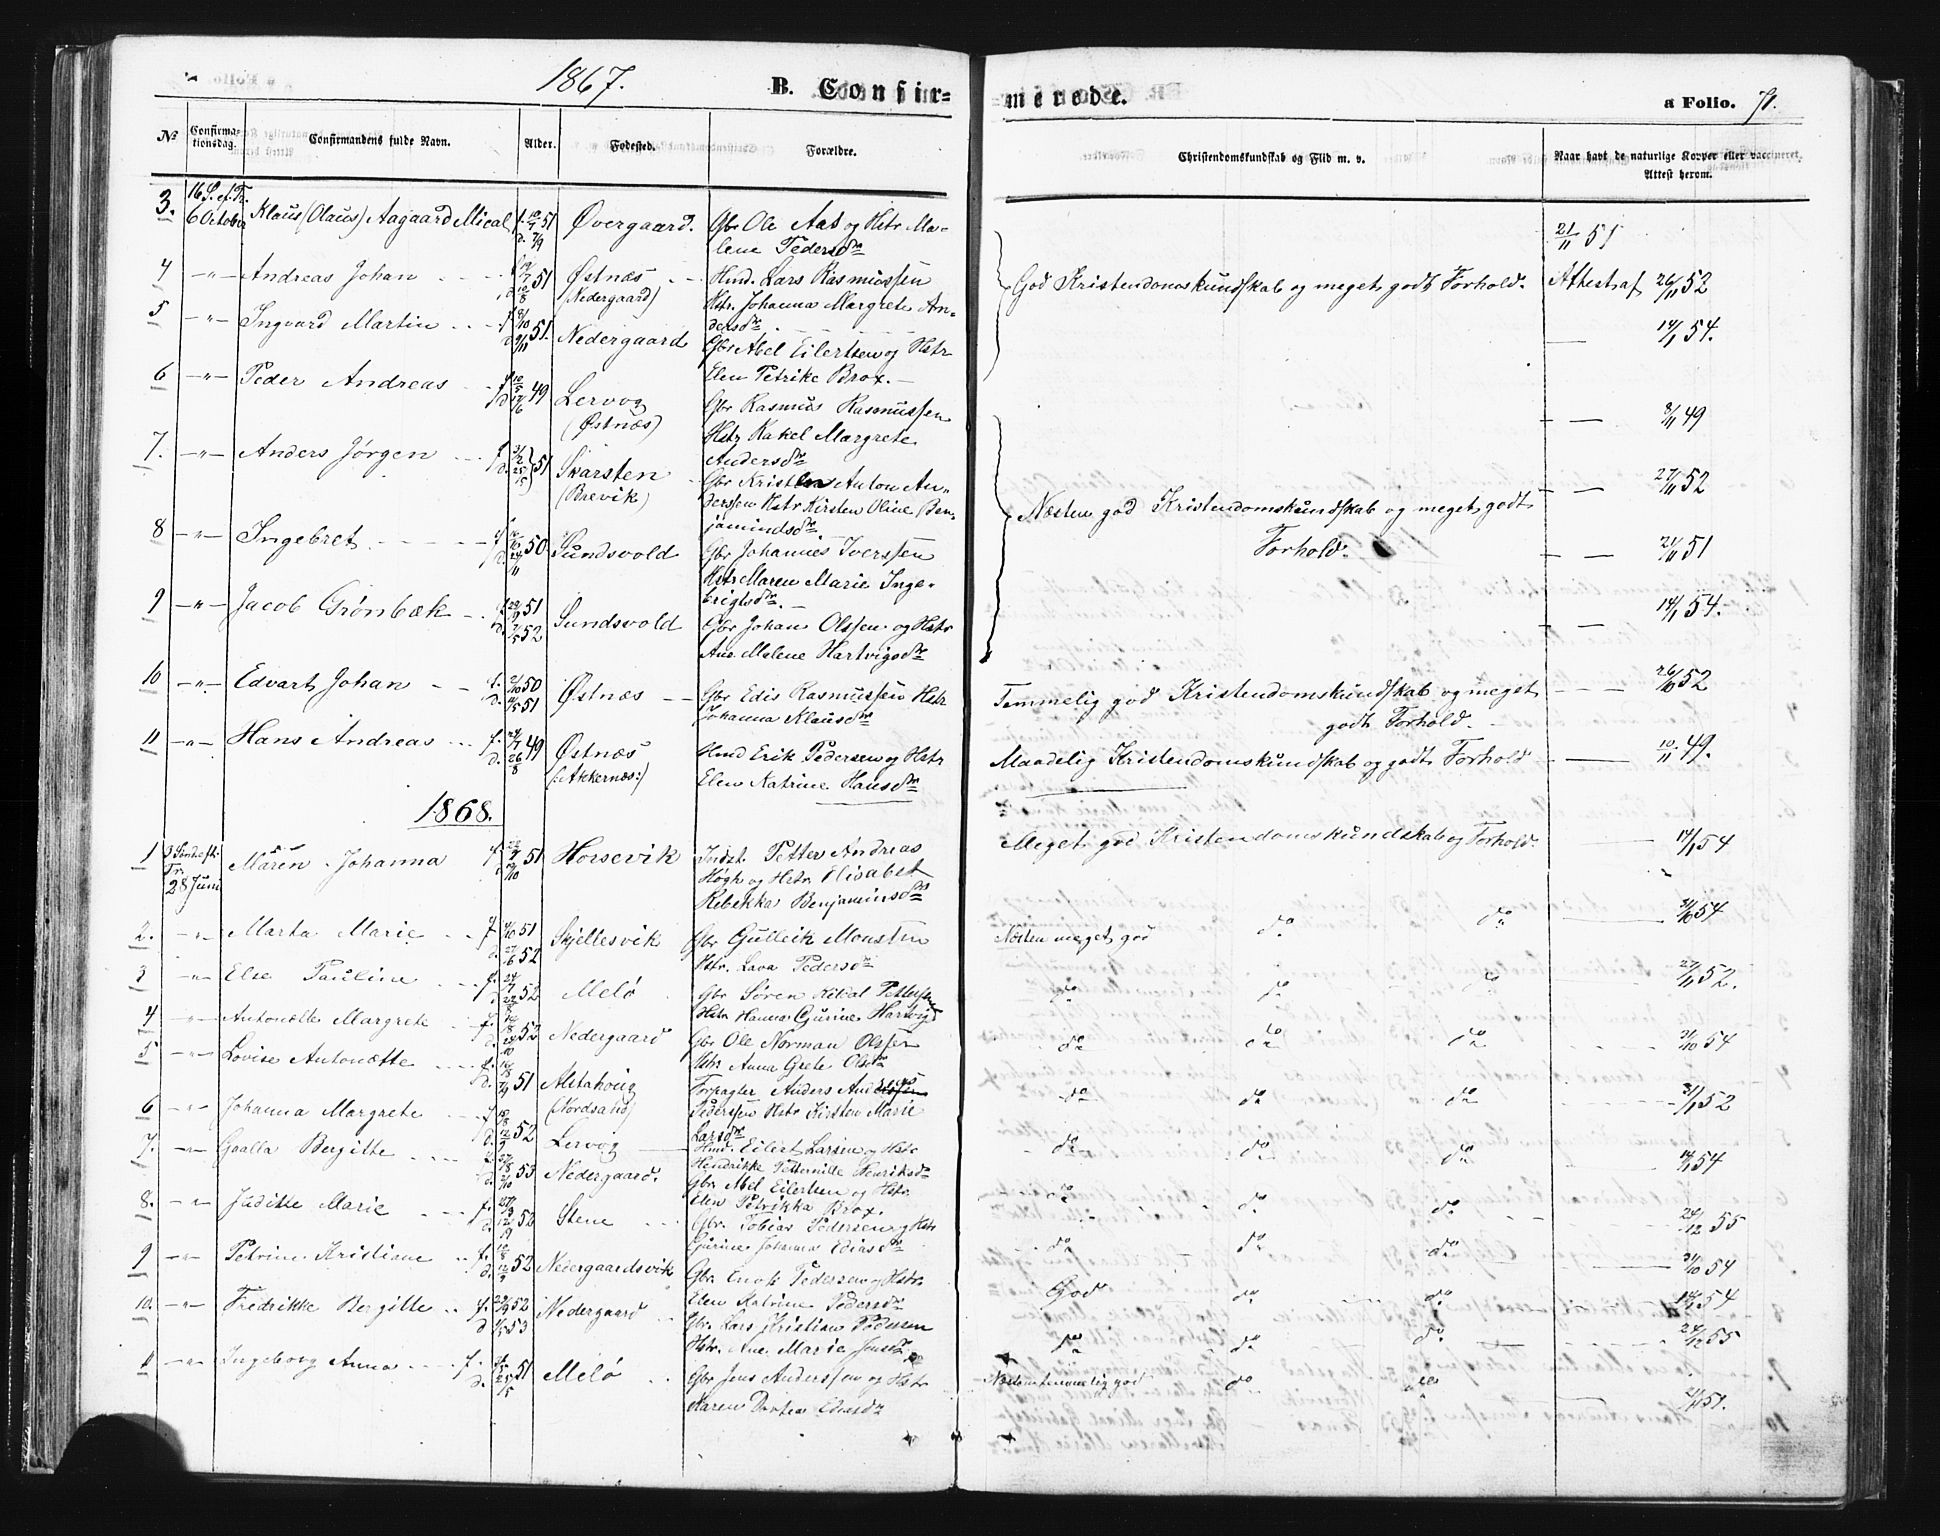 1867.
B. Confir=
merede.
a Folio. 71.
No
Confirma-
tionsdag.
Confirmandens fulde Navn.
Alder.
Fødested.
Forældre.
Christendomskundskab og Flid m. v.
Naar havt de naturlige Kopper eller vaccineret,
Attest herom.
3. 16 S. ef. Tr.
6 October Klaus (Olaus) Aagaard Mical f. 51 Øvergaard. Gbr Ole Aas og Hstr Ma-
lene Pedersdr
21/11 51
4 -"- Andreas Johan 51 Østnæs Hmd. Lars Rasmussen
(Nedergaard) Hstr. Johanna Margrete An-
dersdr.
God Kristendomskundskab og meget godt Forhold. Attest af 26/11 52
5 -"- Ingvard Martin 51. Nedergaard Gbr Abel Eilertsen og Hstr
Elen Petrike Brox.
14/1 54.
6 -"- Peder Andreas 49 Lervog Gbr Rasmus Rasmussen
(Østnæs) Hstr Rakel Margrete
Andersdr
8/11 49
7. -"- Anders Jørgen 51 Skarsten Gbr Kristen Anton An-
(Brevik) derssen Hstr Kirsten Oline Ben-
jamindsdr.
27/11 52
Næsten god Kristendomskundskab og meget godt
Forhold.
8 -"- Ingebret 50. Sundsvold Gbr Johannes Iverssen
Hstr Maren Marie Inge-
brigtsdr.
21/11 51
9 -"- Jacob Grønbæk 51
52 Sundsvold Gbr Johan Olssen og Hstr
Ane Malene Hartvigsdr
14/1 54.
10 -"- Edvart Johan f. 50
d. 51 Østnæs Gbr Edis Rasmussen Hstr
Johanna Klausdr
Temmelig god Kristendomskundskab og meget
godt Forhold. 26/10 52
11 -"- Hans Andreas f. 49
d. 26/8 Østnæs Hmd Erik Pedersen og Hstr
(:Akkernæs:) Elen Katrine Hansdr
Maadelig Kristendomskundskab og godt Forhold 10/11 49.
1868.
1 3 Sønd eft.
Tr.
28 Juni Maren Johanna 51 Horsevik Indst. Petter Andreas
Høgh og Hstr Elisabet
Rebekka Benjaminsdr
Meget god Kristendomskundskab og Forhold. 14/1 54
2. -"- Marta Marie 51
52 Skjellesvik Gbr Gulleik Monsen
Hstr. Lava Pedersdr
Næsten meget god do do 31/10 54
3 -"- Else Pauline f. 52 Melø Gbr Søren Kildal Pettersen
Hstr Hanna Gurine Hartvigs
do do do 27/11 52.
4 -"- Antonette Margrete f. 52 Nedergaard Gbr Ole Norman Olssen
Hstr Anna Grete Olsdr
do do do 31/10 54
5 -"- Lovise Antonætte f. 51 Alstahoug Forpagter Anders
(Nordsand) Pederssen Hstr Kirsten Marie
Larsdr
do do do 52
6 -"- Johanna Margrete f. 52 Lervog Hmd. Eilert Larsen og Hstr
Hendrikke Petternille Henriksdr
do do do 14/1 54
7. -"- Gaalla Bergitte 53 Nedergaard. Gbr. Abel Eilertsen og Hstr.
Elen Petrikka Brox.
do do do 24/12 55
8. -"- Juditte Marie f. 52 Stene Gbr. Tobias Pedersen og Hstr
Gurine Johanna Ediasdr
do do do 31/10 54
9 -"- Petrine Kristiane f. 52 Neiergaardsvik Gbr. Enok Pedersen og Hstr.
Elen Katrine Pedersdr
God do do 14/1 54
10. -"- Fredrikke Bergitte f. 52
d. 53 Nedergaard Gbr. Lars Kristian Pederssen
Hstr. Ane Marie Jensdr
do do do 55
11 -"- Ingeborg Anna f. 51 Melø Gbr Jens Anderssen og Hstr
Karen Dortea Ediasdr
Næsten temmelig god do do 51.